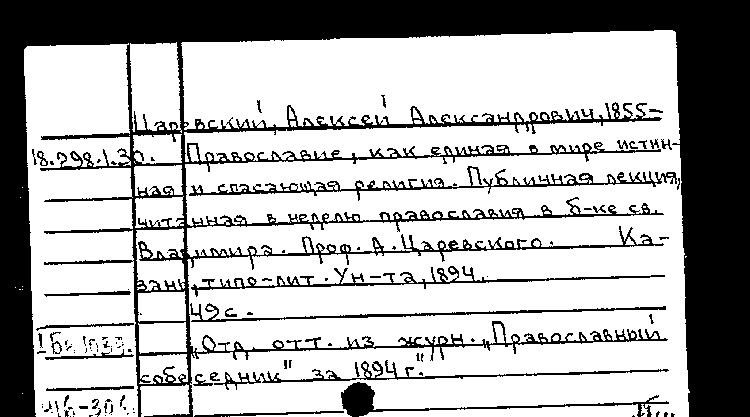 Царевский, Алексей Александрович, 1855-
18.298.1.30. Православие, как единая в мире истин-
ная и спасающая религия. Публичная лекция,
читанная в неделю православия в б-ке св.
Владимира. Проф. А. Царевского. Ка-
зань, типо-лит. Ун-та, 1894.
49 с.
„Отд. отт. из журн. „Православный
собеседник" за 1894 г."